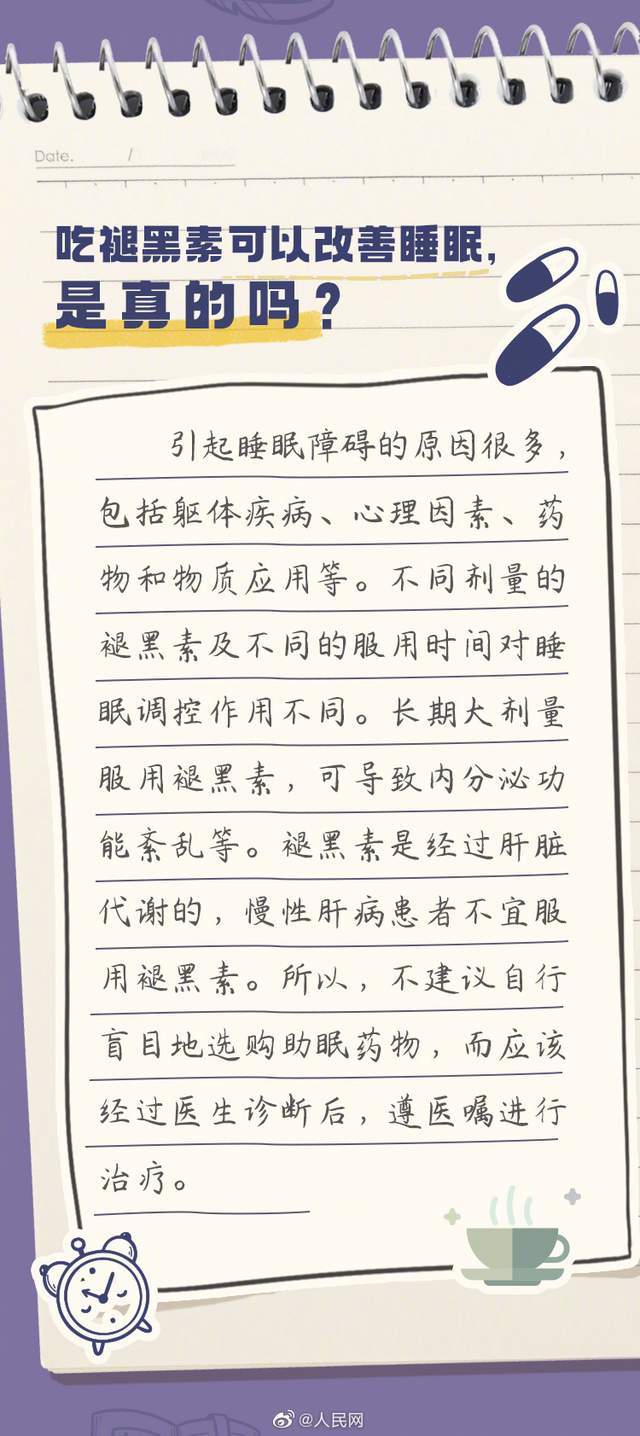 Date. /
吃褪黑素可以改善睡眠，
是真的吗？
引起睡眠障碍的原因很多，
包括躯体疾病、心理因素、药
物和物质应用等。不同剂量的
褪黑素及不同的服用时间对睡
眠调控作用不同。长期大剂量
服用褪黑素，可导致内分泌功
能紊乱等。褪黑素是经过肝脏
代谢的，慢性肝病患者不宜服
用褪黑素。所以，不建议自行
盲目地选购助眠药物，而应该
经过医生诊断后，遵医嘱进行
治疗。
@人民网